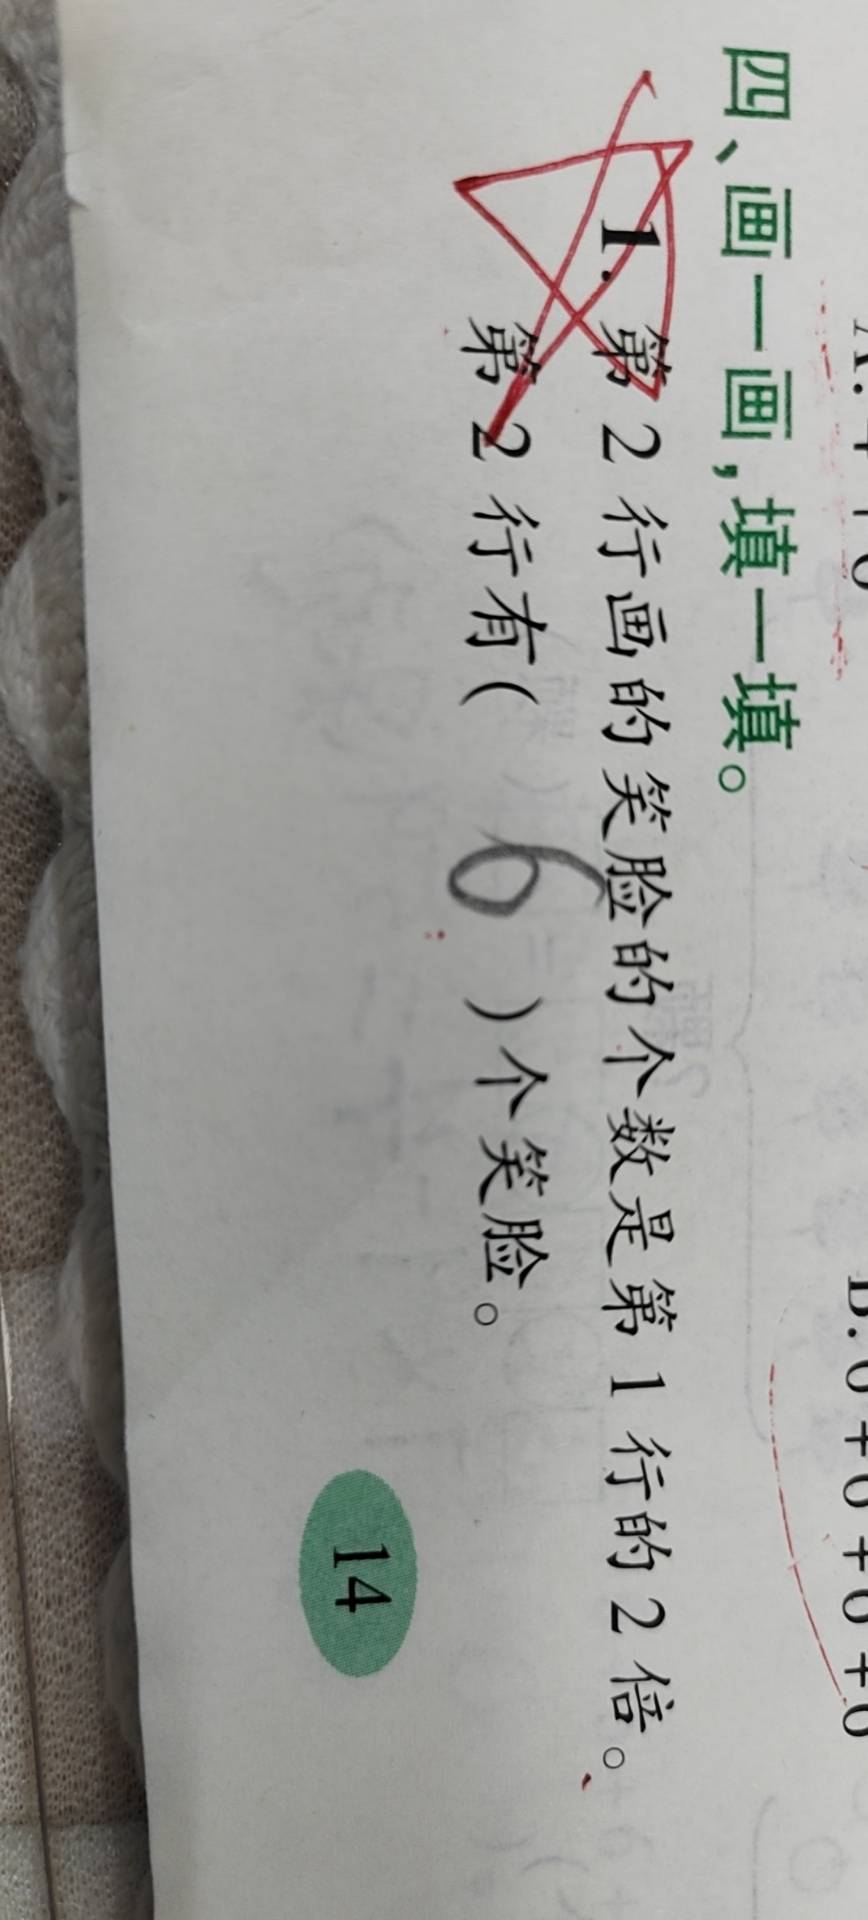 四、画一画,填一填。
1. 第2行画的笑脸的个数是第1行的2倍。
第2行有( 6 )个笑脸。
14